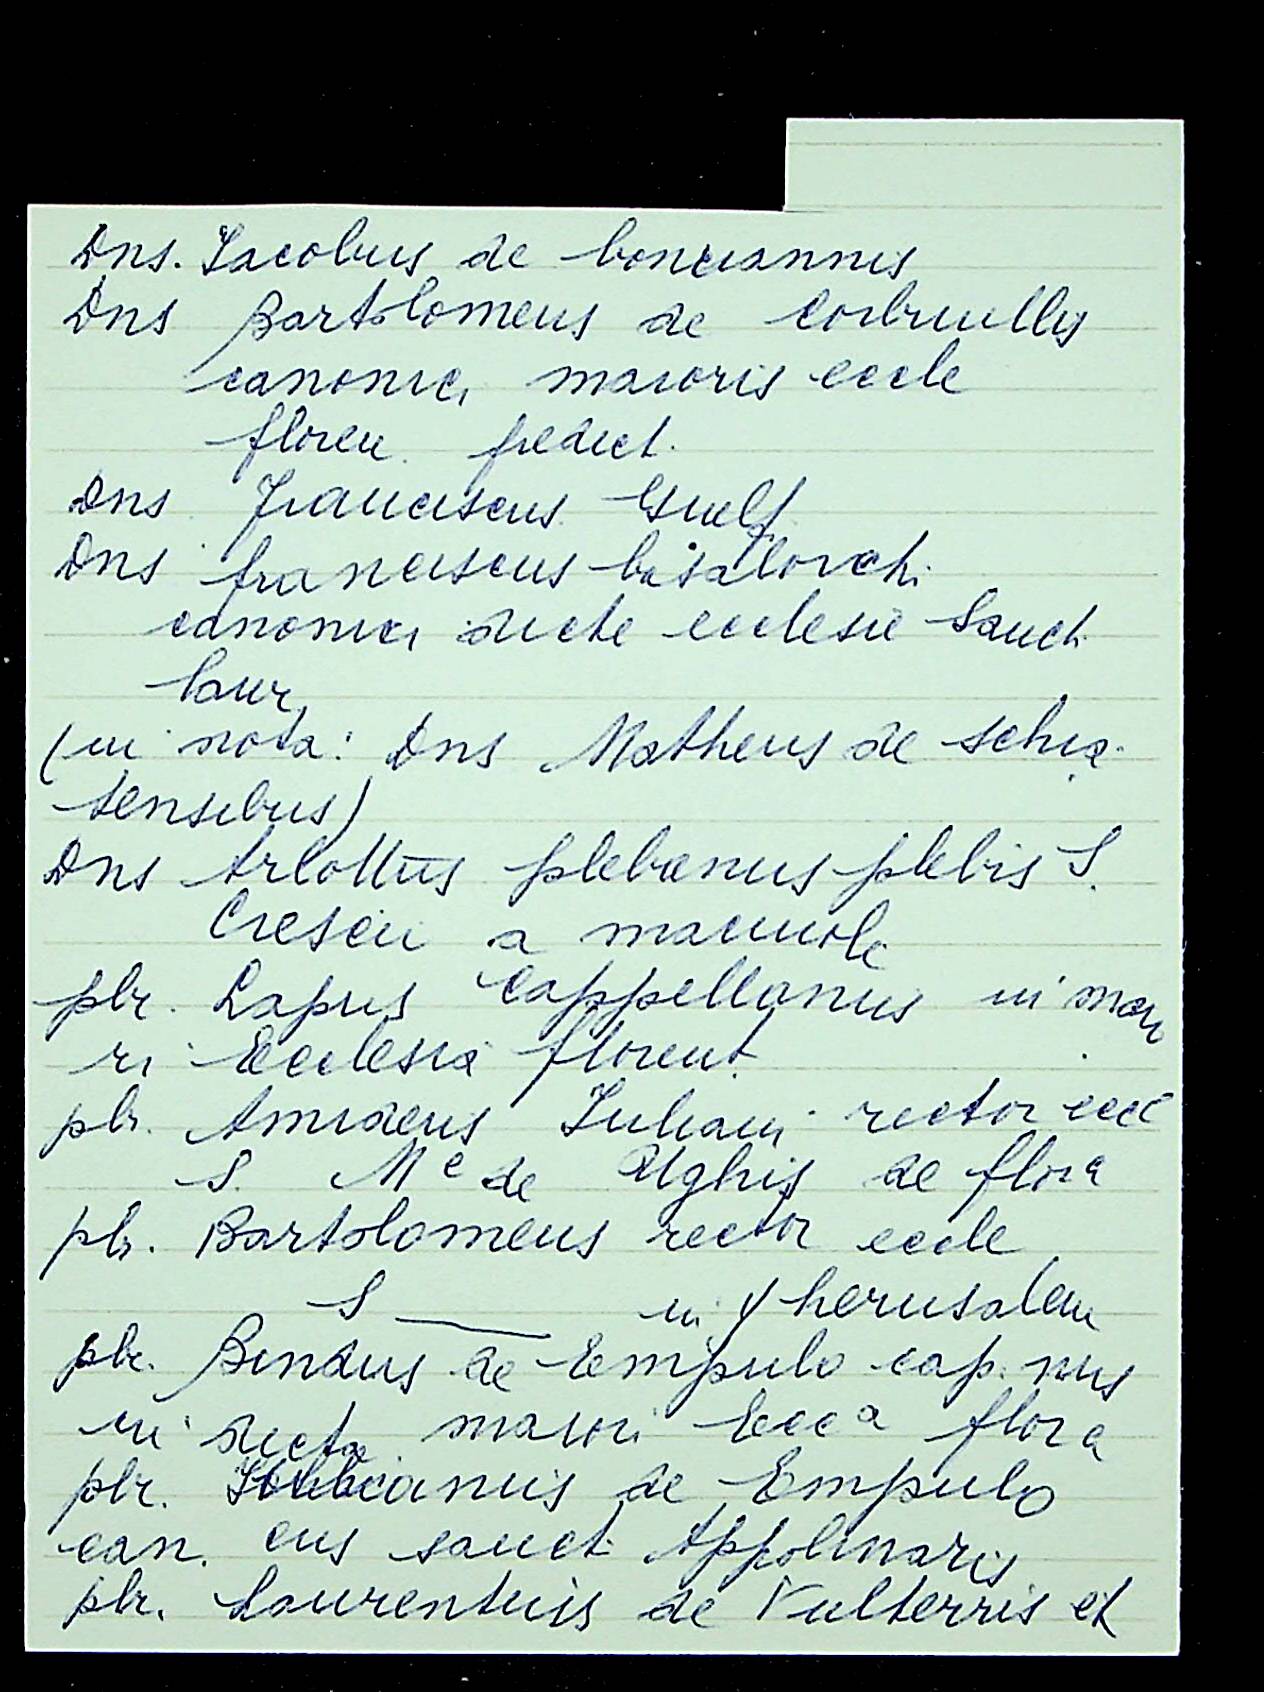 Dns. Iacobus de bonciannis
Dns Bartolomeus de Corbinellis
canonici maioris eccle
floren. predict.
Dns Franciscus Guelf
Dns franciscus bisalorchi
canonici dicte ecclesie Sancti
laur
(in nota: Dns Matheus de schia
tensibus)
Dns Arlottus plebanus plebis S.
Cresci a maciuoli
pbr. Lapus Cappellanus in maiu
ri Ecclesia florent.
pbr. Amideus Iuliani rector eccl
S. Me de Ughis de flora
pbr. Bartolomeus rector eccle
S ___ in Yherusalem
pbr. Bindus de Empulo cap. nus
in dicta maiori Ecca flora
pbr. de Empulo
can. cus sancti Appolinaris
pbr. Laurentius de Vulterris et